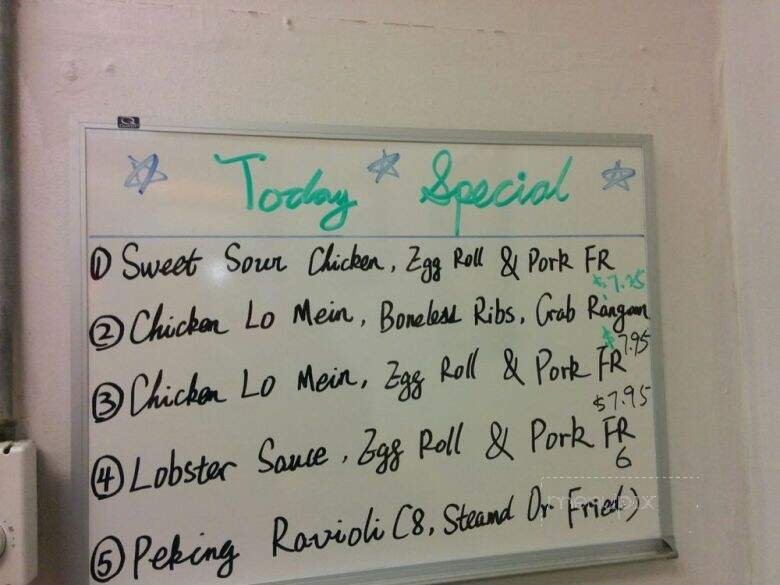 Today Special
① Sweet Sour Chicken, Egg Roll & Pork FR
$7.25
② Chicken Lo Mein, Boneless Ribs, Crab Rangoon
$7.95
③ Chicken Lo Mein, Egg Roll & Pork FR
$7.95
④ Lobster Sauce, Egg Roll & Pork FR
6
⑤ Peking Ravioli (8, Steamd Or Fried)
menupix